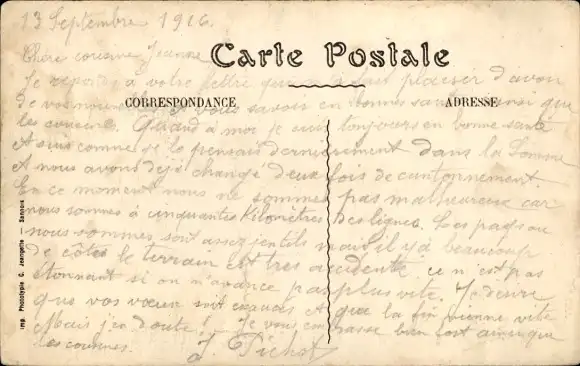 13 Septembre 1916.
Chère cousine Jeanne
Carte Postale
Je repond a votre lettre qui m'a fait plaisir d'avoir
de vos nouvelles et vous savoir en bonne santé ainsi que
CORRESPONDANCE
ADRESSE
les cousines. Quand a moi je suis toujours en bonne santé
Nous sommes je le pensais dernierement dans la Somme
et nous avons déjà changé deux fois de cantonnement.
En ce moment nous ne sommes pas malheureux car
nous sommes à cinquantes kilomètres des lignes. Les pays ou
nous sommes sont assez gentils mais il y a beaucoup
de côtes le terrain est très accidenté ce n'est pas
étonnant si on n'avance pas plus vite. Je desire
que vos vœux soit exaucés et que la fin vienne vite
Mais j'en doute! Je vous embrasse bien fort ainsi que
les cousines. J. Pichot
Imp. Phototypie C. Jeangette - Sannois